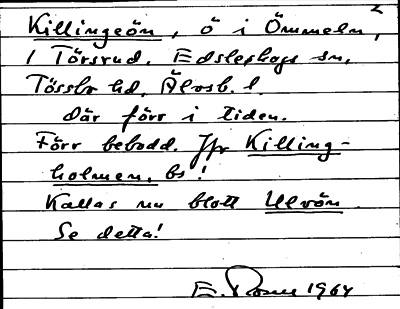 2
Killingeön, ö i Ömmeln,
i Törsrud. Edsleskogs sn,
Tössbo hd. Älvsb. l.
där förr i tiden.
Förr bebodd. Jfr Killing-
holmen, bs!
Kallas nu blott Ulvön
Se detta!
E. 1964